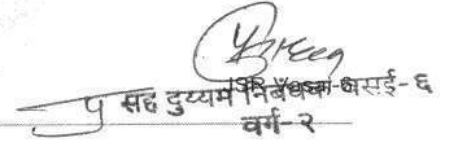 प्र सह दुय्यम निबंधक वसई-६
वर्ग-२